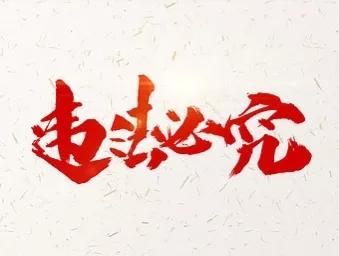 违法必究